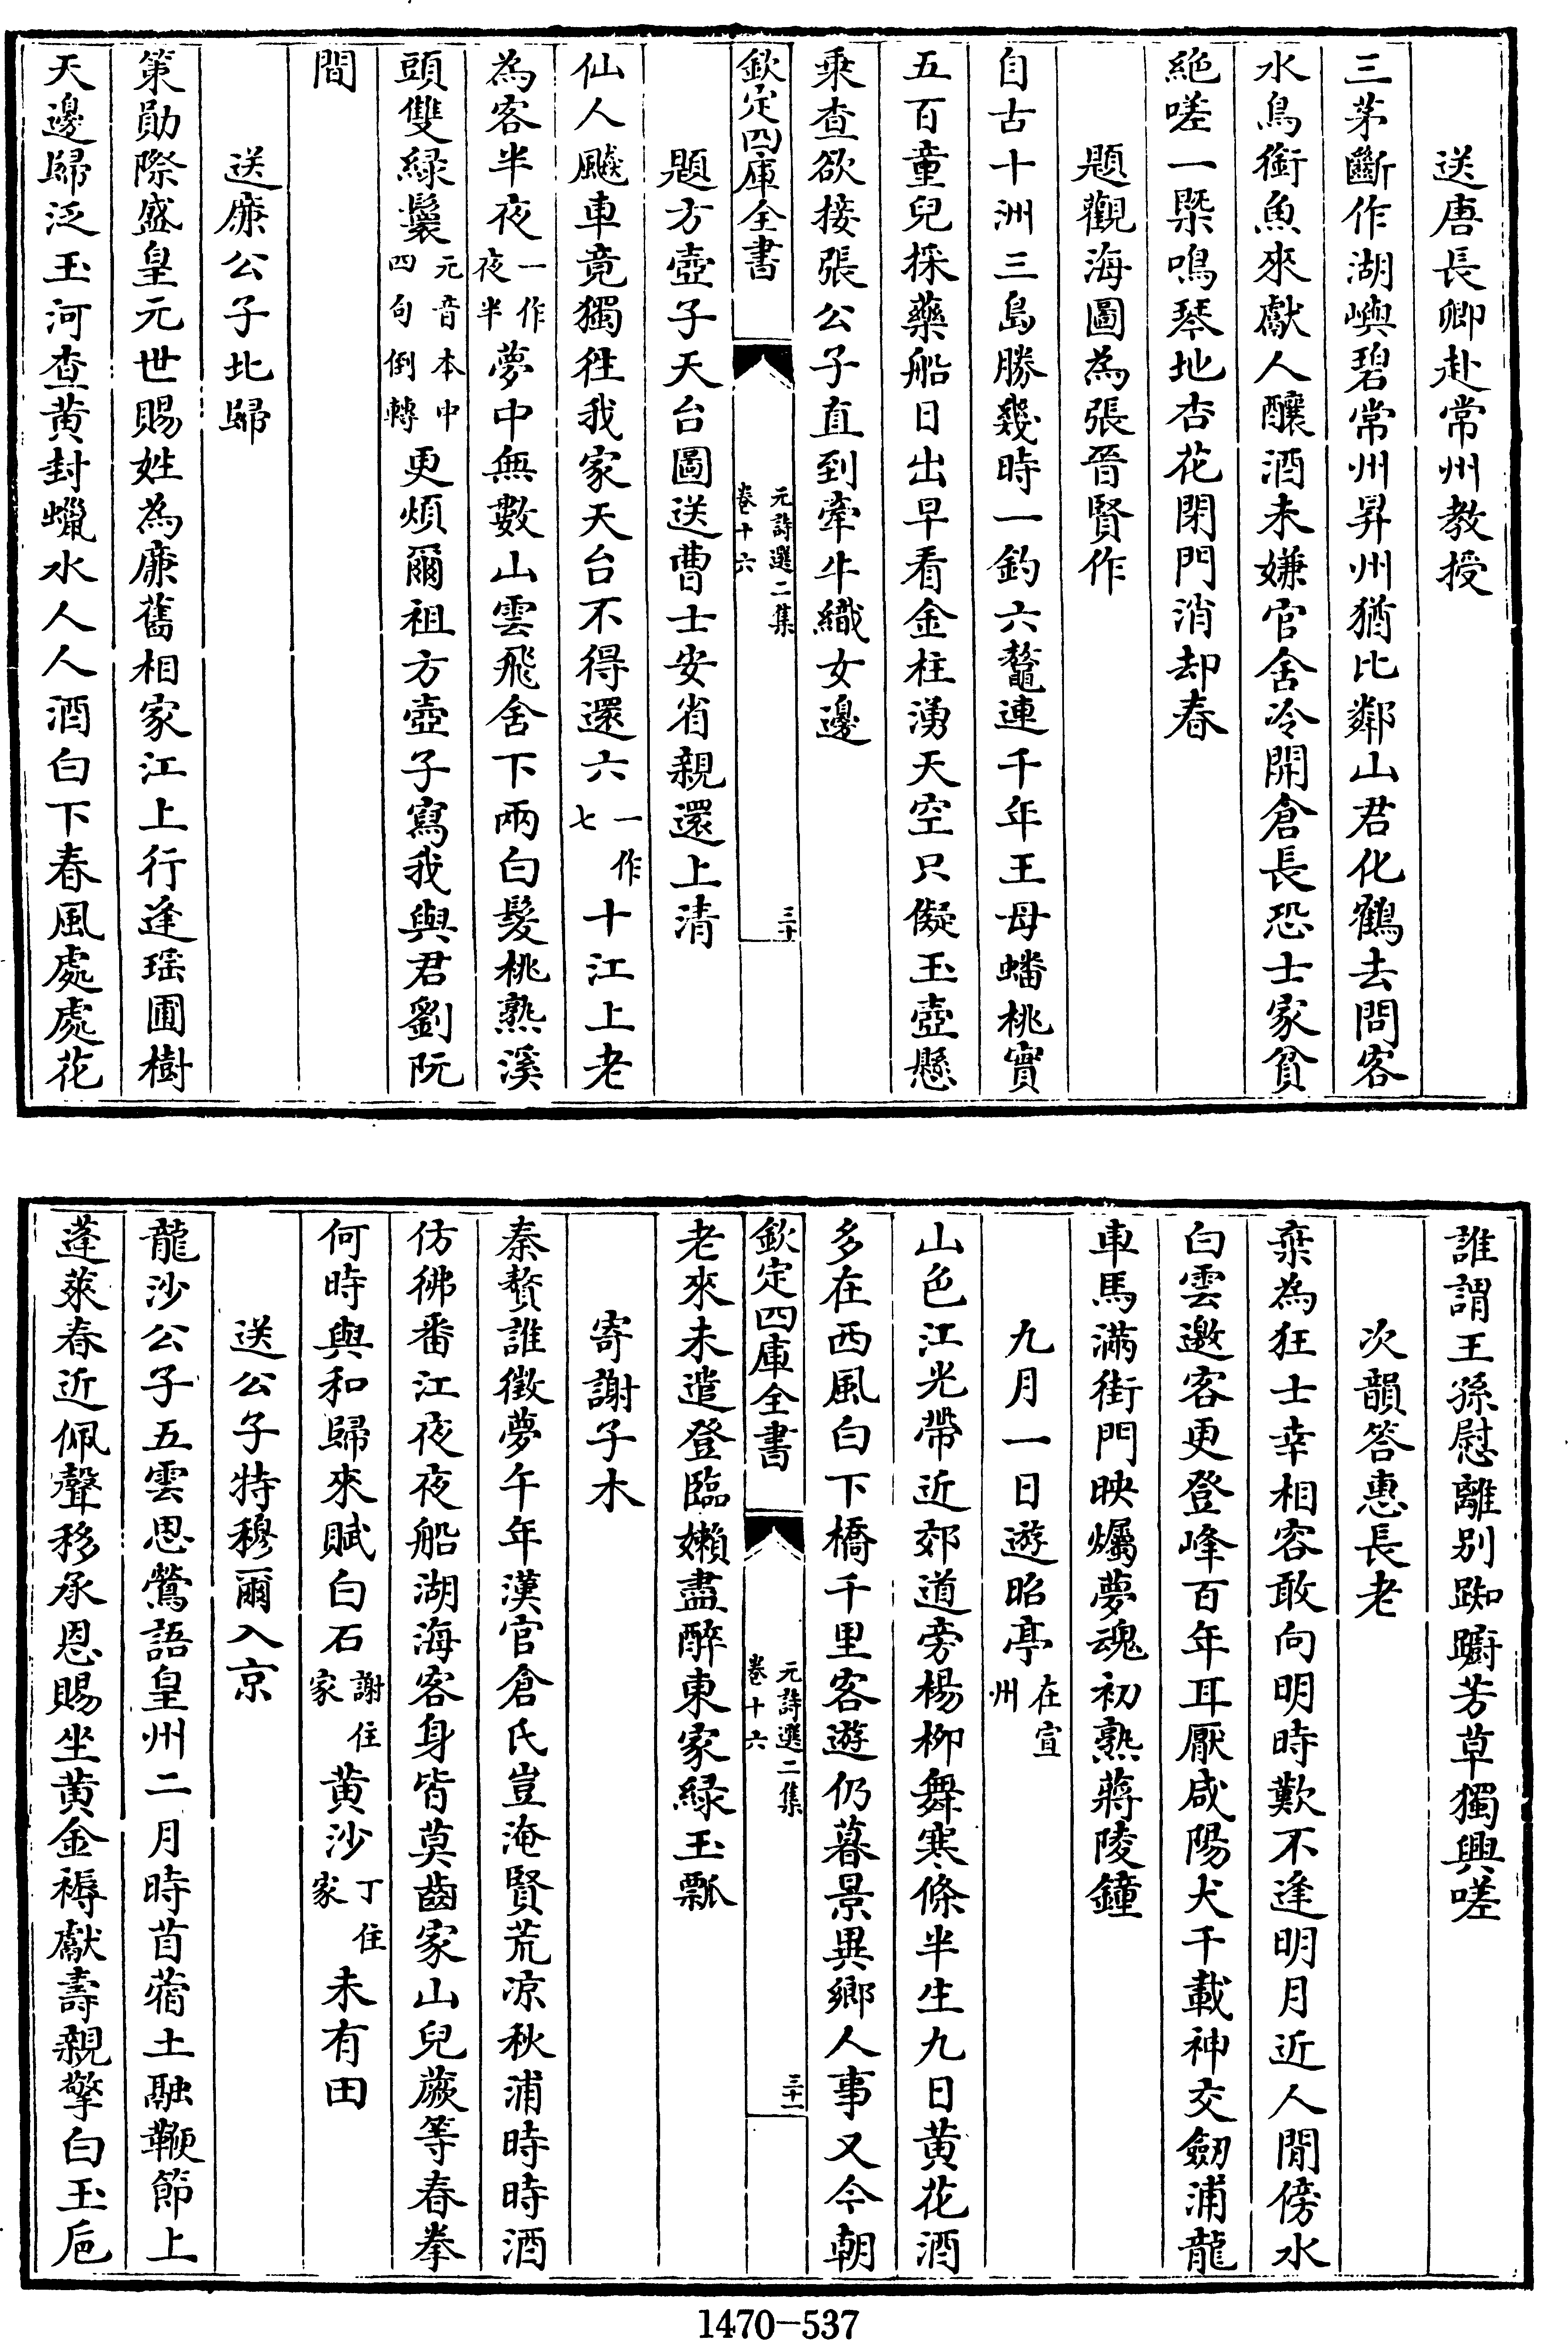 送唐長卿赴常州教授
三茅斷作湖嶼碧常州昇州猶比鄰山君化鶴去問客
水鳥銜魚來獻人釀酒未嫌官舍冷開倉長恐士家貧
絶嗟一㮣鳴琴地杏花閑門消却春
題觀海圖為張晉賢作
自古十洲三島勝幾時一釣六鼇連千年王母蟠桃實
五百童兒採藥船日出早看金柱湧天空只儗玉壺懸
乘查欲接張公子直到牽牛織女邊
欽定四庫全書
元詩選二集
卷十六
三十
題方壺子天台圖送曹士安省親還上清
仙人飈車竟獨往我家天台不得還六一作七十江上老
為客半夜一作夜半夢中無數山雲飛舍下兩白髮桃熟溪
頭雙緑鬟元音本中四句倒轉更煩爾祖方壺子寫我與君劉阮
間
送廉公子北歸
策勛際盛皇元世賜姓為廉舊相家江上行逢瑶圃樹
天邊歸泛玉河查黄封蠟水人人酒白下春風處處花
誰謂王孫慰離别踟躕芳草獨興嗟
次韻答惠長老
棄為狂士幸相容敢向明時歎不逢明月近人閒傍水
白雲邀客更登峰百年耳厭咸陽犬千載神交劒浦龍
車馬滿街門映爥夢魂初熟蔣陵鐘
九月一日遊昭亭在宣州
山色江光帶近郊道旁楊柳舞寒條半生九日黄花酒
多在西風白下橋千里客遊仍暮景異鄉人事又今朝
欽定四庫全書
元詩選二集
卷十六
三十一
老來未遣登臨嬾盡醉東家緑玉瓢
寄謝子木
秦贅誰徵夢午年漢官倉氏豈淹賢荒凉秋浦時時酒
仿彿番江夜夜船湖海客身皆莫齒家山兒蕨等春拳
何時與和歸來賦白石謝住家黄沙丁住家未有田
送公子特穆爾入京
龍沙公子五雲思鶯語皇州二月時苜蓿土融鞭節上
蓬萊春近佩聲移承恩賜坐黄金褥獻壽親擎白玉巵
1470-537